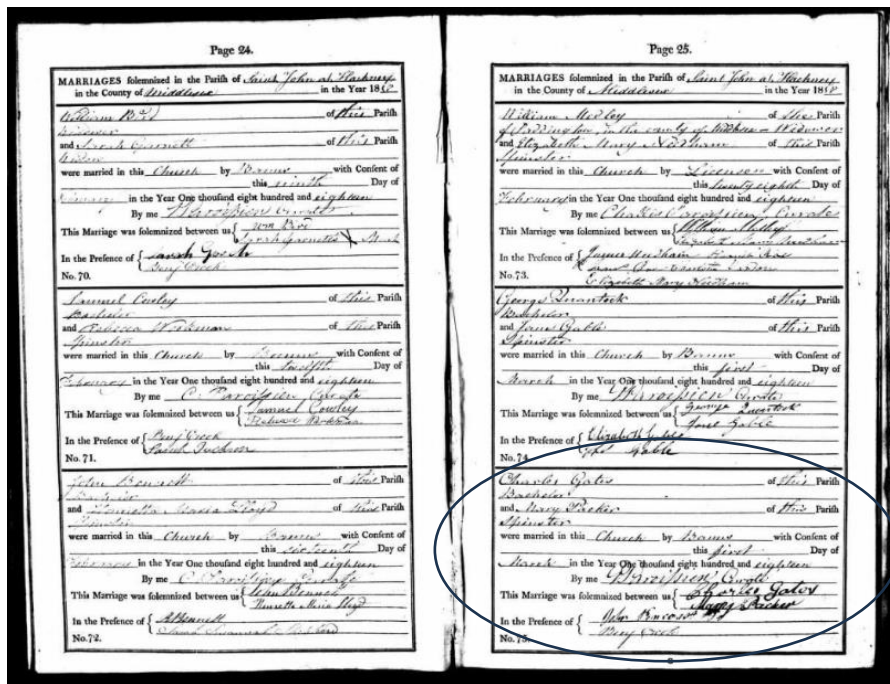 Page 24.
MARRIAGES solemnized in the Parish of Saint John at Hackney
in the County of Middlesex in the Year 1818
William Bird of this Parish
Widower
and Sarah Garnett of this Parish
Widow
were married in this Church by Banns with Consent of
this ninth Day of
in the Year One thousand eight hundred and eighteen
By me Curate
This Marriage was solemnized between us
Sarah Garnett X Mark
In the Presence of Sarah
Benj Crook
No. 70.
Samuel Cowley of this Parish
Bachelor
and Rebecca Workman of this Parish
Spinster
were married in this Church by Banns with Consent of
this twelfth Day of
February in the Year One thousand eight hundred and eighteen
By me C. Paroissien, Curate
This Marriage was solemnized between us Samuel Cowley
Rebecca Workman
In the Presence of Benj Crook
Sarah Jackson
No. 71.
John Bennett of this Parish
Bachelor
and Henrietta Maria Lloyd of this Parish
Spinster
were married in this Church by Banns with Consent of
this sixteenth Day of
February in the Year One thousand eight hundred and eighteen
By me C Paroissien Curate
This Marriage was solemnized between us John Bennett
Henrietta Maria Lloyd
In the Presence of A Bennett
No. 72.
Page 25.
MARRIAGES solemnized in the Parish of Saint John at Hackney
in the County of Middlesex in the Year 1818
William Medley of the Parish
of Paddington, in the County of Middlesex Widower
and Elizabeth Mary Needham of this Parish
Spinster
were married in this Church by License with Consent of
this twenty eighth Day of
February in the Year One thousand eight hundred and eighteen
By me Challis Paroissien, Curate
This Marriage was solemnized between us William Medley
Elizabeth Mary Needham
In the Presence of James Needham
Elizabeth Mary Needham
No. 73.
George Quantock of this Parish
Bachelor
and Jane Gable of this Parish
Spinster
were married in this Church by Banns with Consent of
this first Day of
March in the Year One thousand eight hundred and eighteen
By me Paroissien Curate
This Marriage was solemnized between us George Quantock
Jane Gable
In the Presence of Elizabeth Gable
Gable
No. 74.
Charles Gates of this Parish
Bachelor
and Mary Packer of this Parish
Spinster
were married in this Church by Banns with Consent of
this first Day of
March in the Year One thousand eight hundred and eighteen
By me Paroissien Curate
This Marriage was solemnized between us Charles Gates
Mary Packer
In the Presence of John
Benj Crook
No. 75.